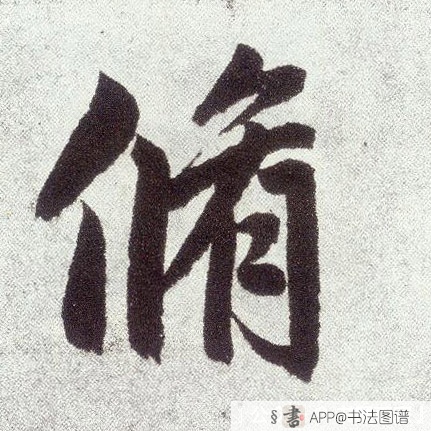 脩
§書 APP@书法图谱